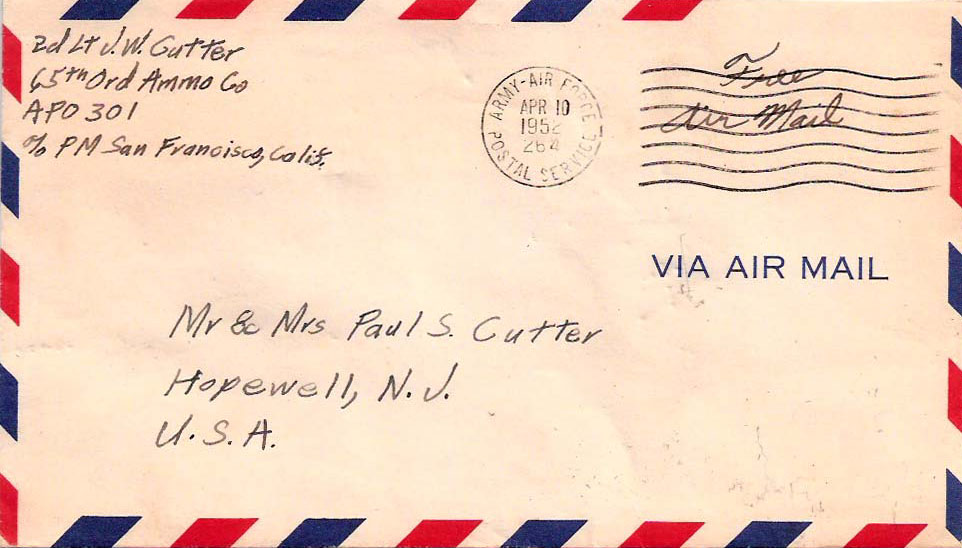 2d Lt J.W. Cutter
65th Ord Ammo Co
APO 301
c/o PM San Francisco, Calif.
ARMY-AIR FORCE
POSTAL SERVICE
APR 10
1952
264
Free
Air Mail
VIA AIR MAIL
Mr & Mrs Paul S. Cutter
Hopewell, N.J.
U.S.A.